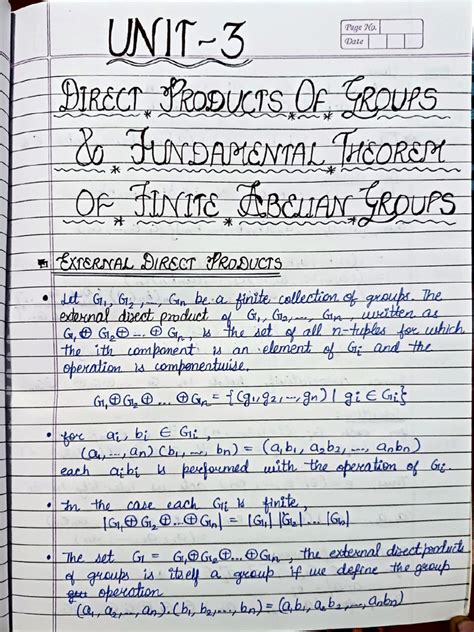 UNIT-3
Page No.
Date
DIRECT PRODUCTS OF GROUPS
& FUNDAMENTAL THEOREM
OF FINITE ABELIAN GROUPS
EXTERNAL DIRECT PRODUCTS
• Let G₁, G₂, ..., Gn be a finite collection of groups. The
external direct product of G₁, G₂, ..., Gn, written as
G₁ ⊕ G₂ ⊕ ... ⊕ Gn, is the set of all n-tuples for which
the ith component is an element of Gi and the
operation is componentwise.
G₁ ⊕ G₂ ⊕ ... ⊕ Gn = {(g₁, g₂, ..., gn) | gi ∈ Gi}
• for ai, bi ∈ Gi,
(a₁, ..., an) (b₁, ..., bn) = (a₁b₁, a₂b₂, ..., anbn)
each aibi is performed with the operation of Gi.
• In the case each Gi is finite,
|G₁ ⊕ G₂ ⊕ ... ⊕ Gn| = |G₁| |G₂| ... |Gn|
• The set G = G₁ ⊕ G₂ ⊕ ... ⊕ Gn, the external direct products
of groups is itself a group if we define the group
operation
(a₁, a₂, ..., an).(b₁, b₂, ..., bn) = (a₁b₁, a₂b₂, ..., anbn)